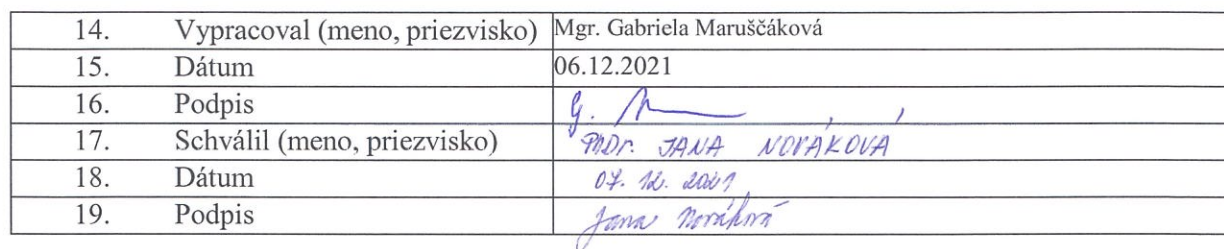 14. Vypracoval (meno, priezvisko) Mgr. Gabriela Maruščáková
15. Dátum 06.12.2021
16. Podpis G.
17. Schválil (meno, priezvisko) PhDr. JANA NOVÁKOVÁ
18. Dátum 07. 12. 2021
19. Podpis Jana Nováková